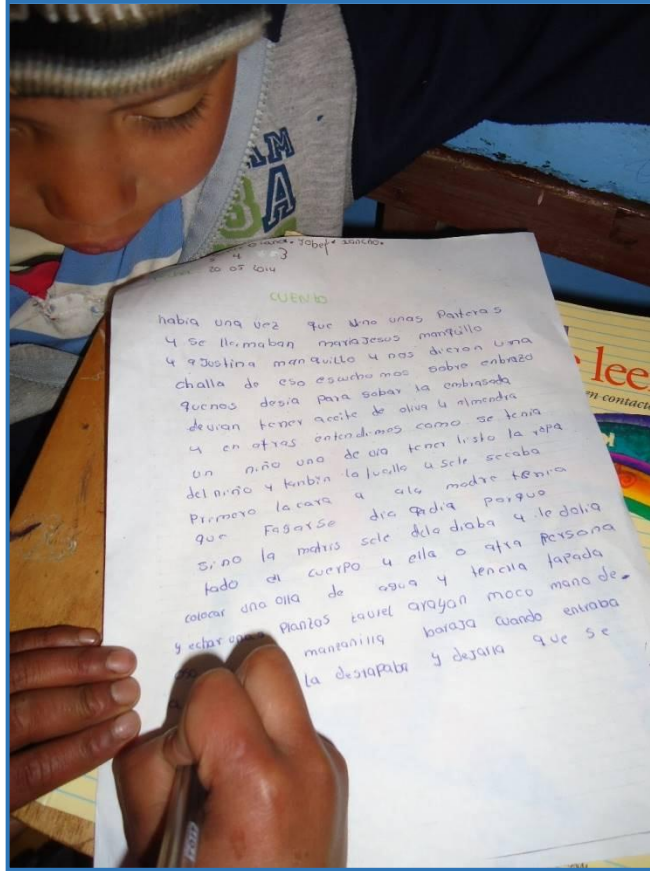 20 05 2014
CUENTO
habia una vez que uno unas Parteras
y se llamaban maria Jesus manquillo
y agustina manquillo y nos dieron una
challa de eso escuchomos sobre enbrazo
quenos desia Para sobar la embrasada
devian tener aceite de oliva y almendra
y en otras entendimos como se tenia
un niño uno devia tener listo la ropa
del niño y tanbin la tualla y sele secaba
Primero la cara y ala madre tenia
que Fagarse dia andia Porque
si no la matris sele dela diaba y le dolia
todo el cuerpo y ella o atra Persona
colocar una olla de agua y tencila tapada
y echar unas Plantas laurel arayan moco mano de.
manzanilla boraja cuando entraba
la destapaba y dejarla que se
lee
en contacto